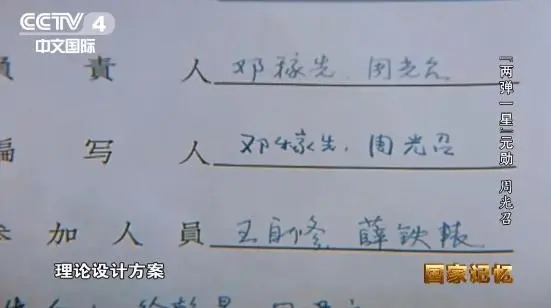 CCTV 4
中文国际
負責人 邓稼先、周光召
编写人 邓稼先、周光召
参加人員 王自修 薛铁辕
理论设计方案
「两弹一星」元勋 周光召
国家记忆